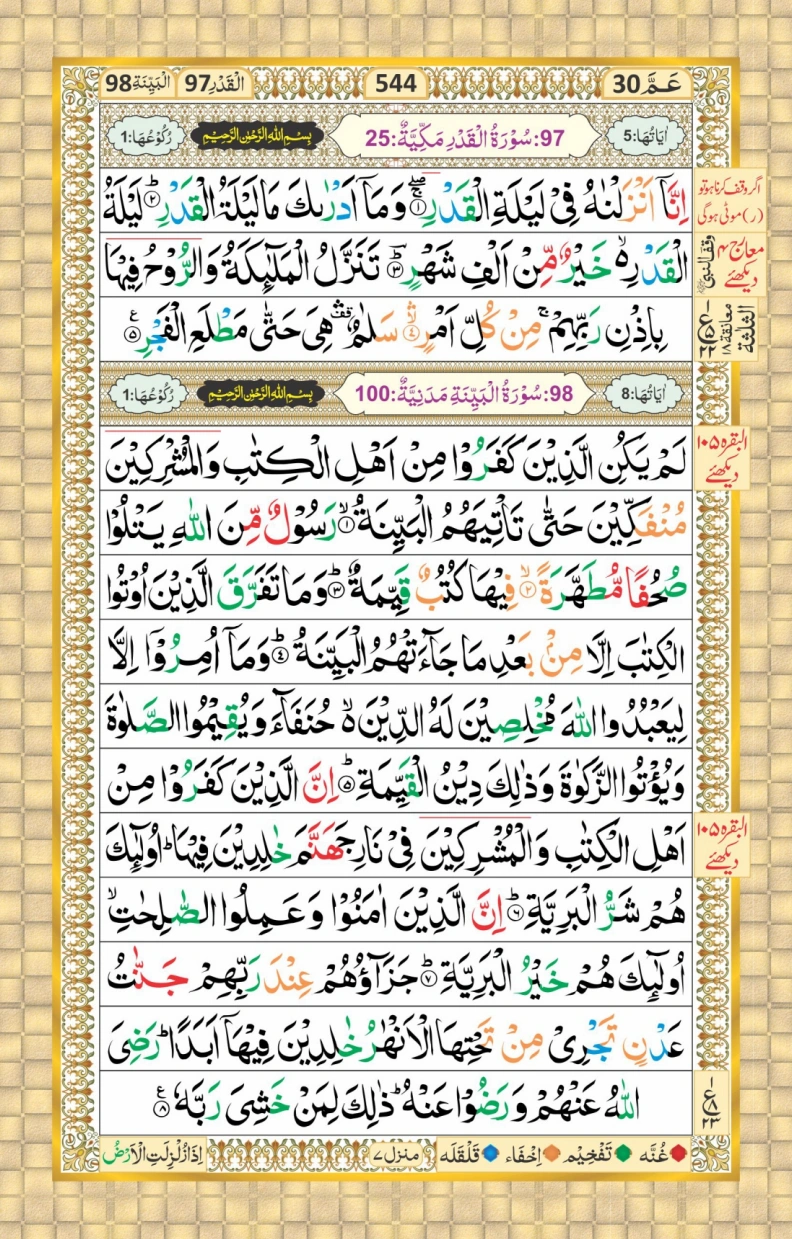 عَمَّ 30
544
اَلْقَدْر 97 اَلْبَيِّنَة 98
اٰيَاتُهَا: 5
97: سُوْرَةُ الْقَدْرِ مَكِّيَّةٌ: 25
بِسْمِ اللّٰهِ الرَّحْمٰنِ الرَّحِيْمِ
رُكُوْعُهَا: 1
اِنَّاۤ اَنْزَلْنٰهُ فِىْ لَيْلَةِ الْقَدْرِ ۖۚ‏ ۝١ وَمَاۤ اَدْرٰٮكَ مَا لَيْلَةُ الْقَدْرِؕ ۝٢ لَيْلَةُ
الْقَدْرِ ۙ خَيْرٌ مِّنْ اَلْفِ شَهْرٍؕ ۝٣ تَنَزَّلُ الْمَلٰٓٮِٕكَةُ وَالرُّوْحُ فِيْهَا
بِاِذْنِ رَبِّهِمْ‌ۚ مِنْ كُلِّ اَمْرٍ ۛۙ ۝٤ سَلٰمٌ ۛ هِىَ حَتّٰى مَطْلَعِ الْفَجْرِ ۝٥
اگر وقف کرنا ہو تو
(ر) موٹی ہوگی
معارج ۴
دیکھئے
وقف النبیﷺ
ع
۵
۲۲
معانقة ۱۸
الثلٰثة
اٰيَاتُهَا: 8
98: سُوْرَةُ الْبَيِّنَةِ مَدَنِيَّةٌ: 100
بِسْمِ اللّٰهِ الرَّحْمٰنِ الرَّحِيْمِ
رُكُوْعُهَا: 1
لَمْ يَكُنِ الَّذِيْنَ كَفَرُوْا مِنْ اَهْلِ الْكِتٰبِ وَالْمُشْرِكِيْنَ
مُنْفَكِّيْنَ حَتّٰى تَاْتِيَهُمُ الْبَيِّنَةُ ۙ ۝١ رَسُوْلٌ مِّنَ اللّٰهِ يَتْلُوْا
صُحُفًا مُّطَهَّرَةً ۙ ۝٢ فِيْهَا كُتُبٌ قَيِّمَةٌ ؕ ۝٣ وَمَا تَفَرَّقَ الَّذِيْنَ اُوْتُوا
الْكِتٰبَ اِلَّا مِنْۢ بَعْدِ مَا جَآءَتْهُمُ الْبَيِّنَةُ ؕ ۝٤ وَمَاۤ اُمِرُوْۤا اِلَّا
لِيَعْبُدُوا اللّٰهَ مُخْلِصِيْنَ لَهُ الدِّيْنَ ۙ حُنَفَآءَ وَيُقِيْمُوا الصَّلٰوةَ
وَيُؤْتُوا الزَّكٰوةَ وَذٰلِكَ دِيْنُ الْقَيِّمَةِ ؕ ۝٥ اِنَّ الَّذِيْنَ كَفَرُوْا مِنْ
اَهْلِ الْكِتٰبِ وَالْمُشْرِكِيْنَ فِىْ نَارِ جَهَنَّمَ خٰلِدِيْنَ فِيْهَا ؕ اُولٰٓٮِٕكَ
هُمْ شَرُّ الْبَرِيَّةِ ؕ ۝٦ اِنَّ الَّذِيْنَ اٰمَنُوْا وَعَمِلُوا الصّٰلِحٰتِ ۙ
اُولٰٓٮِٕكَ هُمْ خَيْرُ الْبَرِيَّةِ ؕ ۝٧ جَزَآؤُهُمْ عِنْدَ رَبِّهِمْ جَنّٰتُ
عَدْنٍ تَجْرِىْ مِنْ تَحْتِهَا الْاَنْهٰرُ خٰلِدِيْنَ فِيْهَاۤ اَبَدًا ؕ رَضِىَ
اللّٰهُ عَنْهُمْ وَرَضُوْا عَنْهُ ؕ ذٰلِكَ لِمَنْ خَشِىَ رَبَّهٗ ۝٨
البقرہ ۱۰۵
دیکھئے
البقرہ ۱۰۵
دیکھئے
۱
ع
۸
۲۳
غُنَّه تَفْخِيْم اِخْفَاء قَلْقَلَه
منزل ۷
اِذَا زُلْزِلَتِ الْاَرْضُ